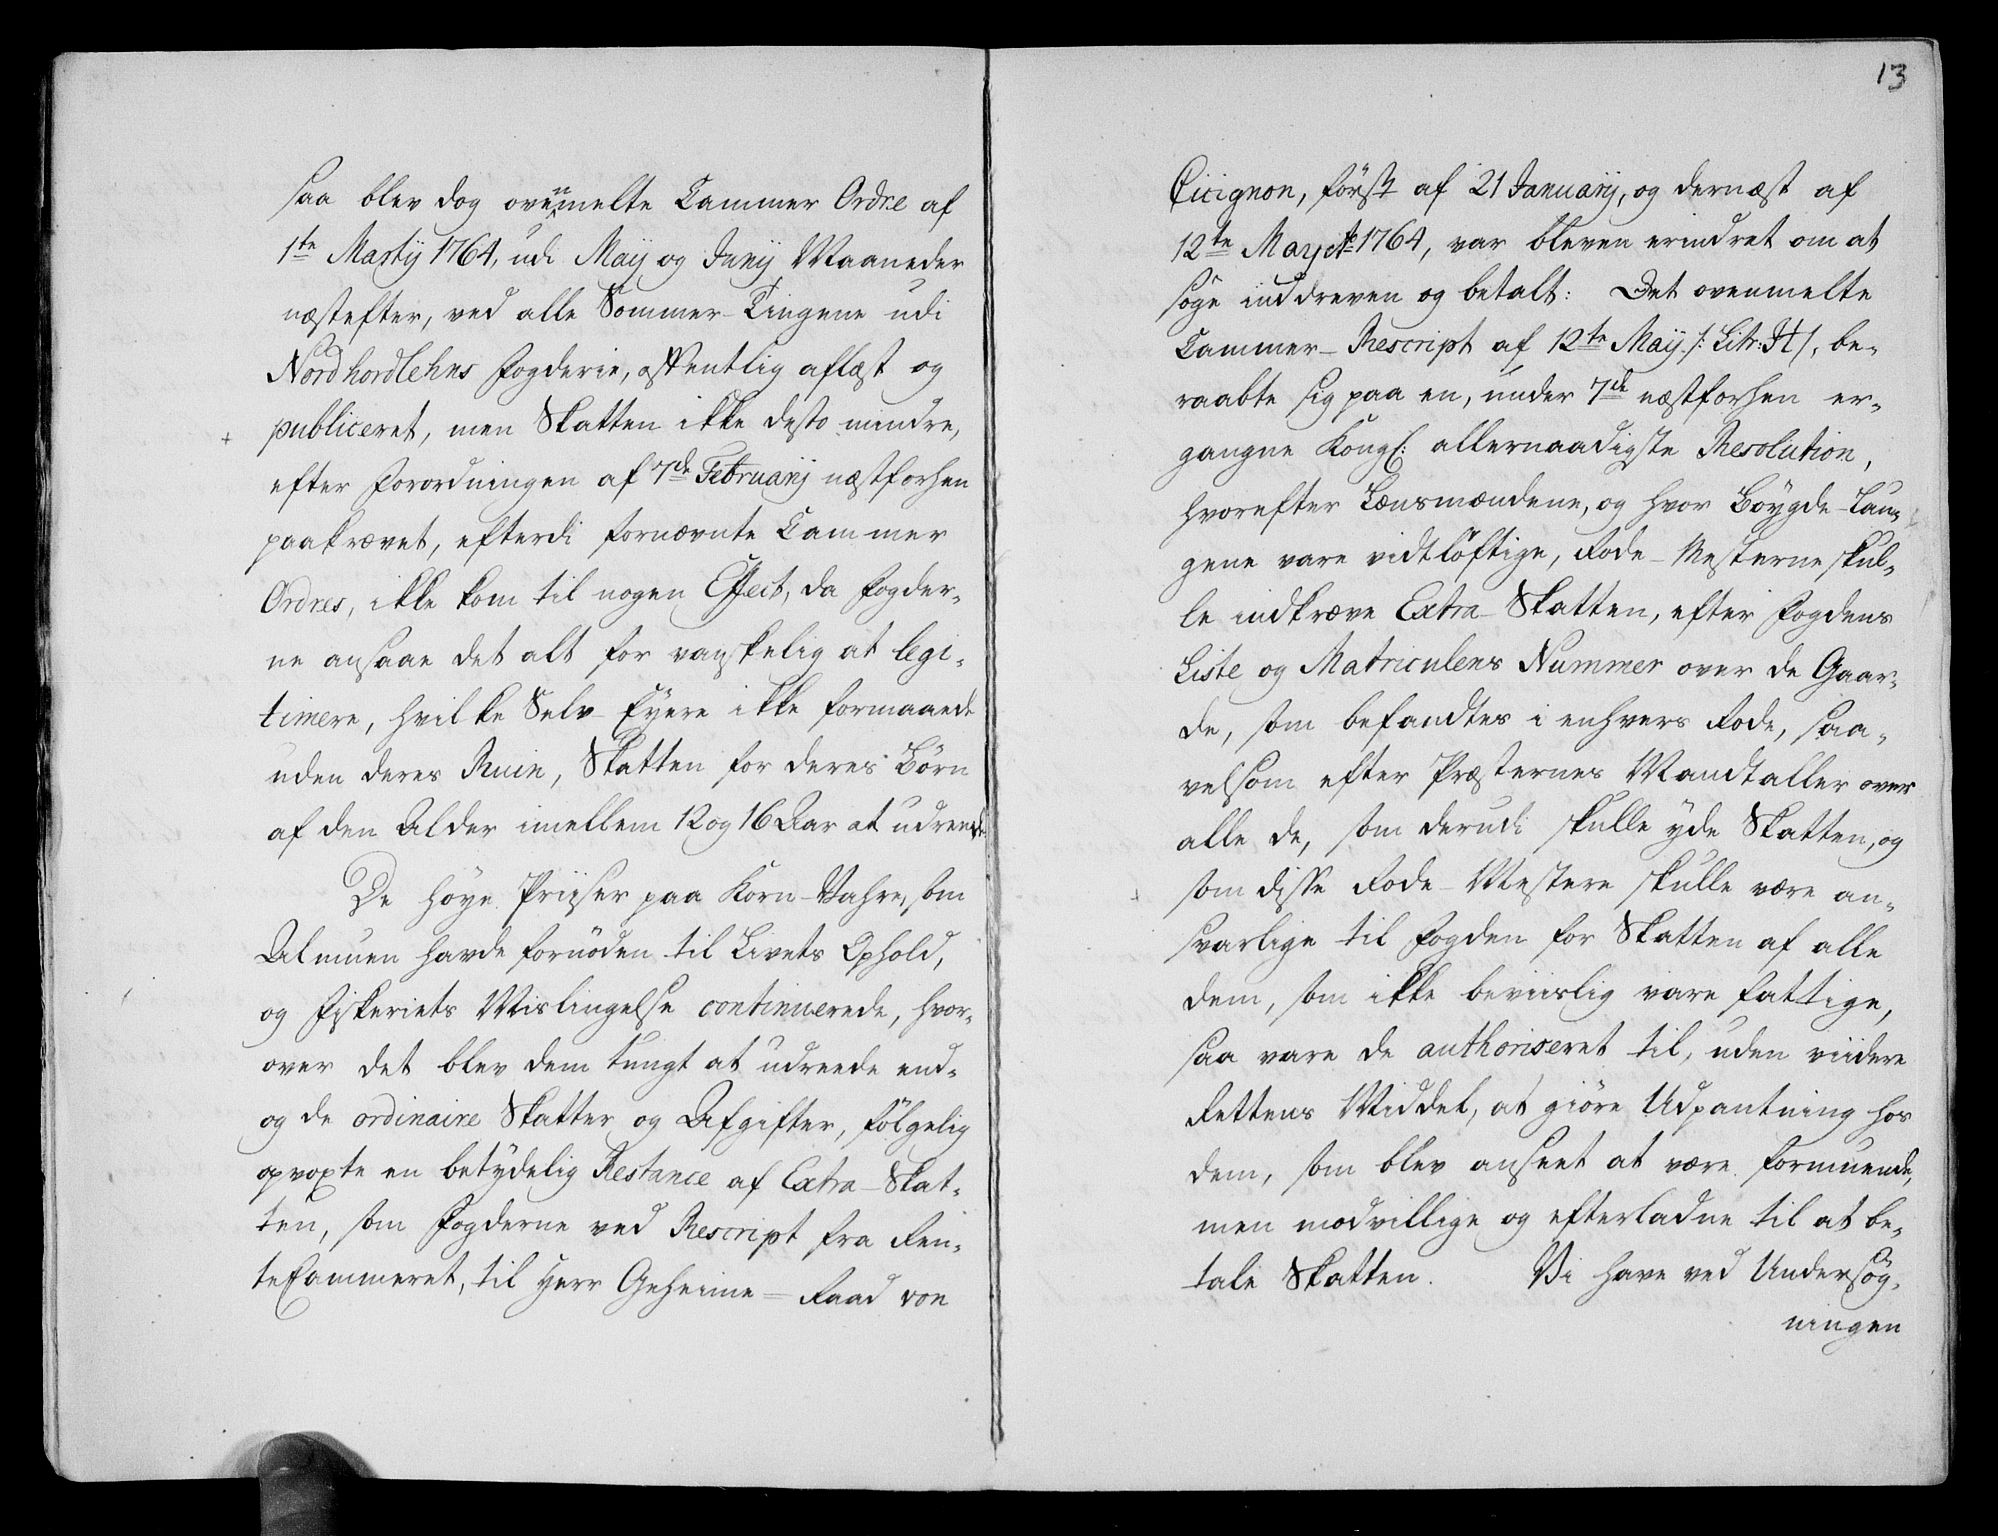 saa blev dog ovenmelte Cammer Ordre af
1te Martij 1764, udi Maij og Junij Maaneder
næstefter, ved alle Sommer-Tingene udi
Nordhordlehns Fogderie, offentlig aflæst og
publiceret, men Skatten ikke desto mindre,
efter Forordningen af 7de Februarij næstforhen
paakrævet, efterdi fornævnte Cammer
Ordres, ikke kom til nogen Effect, da Fogder-
ne ansaae det alt for vanskelig at legi-
timere, hvilke Selv-Eyere ikke formaaede
uden deres Ruin, Skatten for deres Börn
af den Alder imellem 12 og 16 Aar at udreede.
De höye Priiser paa Korn-Vahre, som
Almuen havde fornöden til Livets Ophold,
og Fiskeriets Mislingelse continuerede, hvor-
over det blev dem tungt at udreede end-
og de ordinaire Skatter og Afgifter, fölgelig
opvoxte en betydelig Restance af Extra-Skat-
ten, som Fogderne ved Rescript fra Ren-
teCammeret, til Herr Geheime-Raad von
13
Cicignon, först af 21 Januarij, og dernæst af
12te May Ao 1764, var bleven erindret om at
söge inddreven og betalt: Det ovenmelte
Cammer-Rescript af 12te Maij /: Litr: H /, be-
raabte sig paa en, under 7de næstforhen er-
gangne Kongl: allernaadigste Resolution,
hvorefter Lænsmændene, og hvor Böygde-Lau-
gene vare vidtlöftige, Rode-Mesterne skul-
le indkræve Extra-Skatten, efter Fogdens
Liste og Matriculens Nummer over de Gaar-
de, som befandtes i enhvers Rode, saa-
velsom efter Præsternes Mandtaller over
alle de, som derudi skulle yde Skatten, og
som disse Rode-Mestere skulle være an-
svarlige til Fogden for Skatten af alle
dem, som ikke beviislig vare fattige,
saa vare de authoriseret til, uden viidere
Rettens Middel, at giöre Udpantning hos
dem, som blev anseet at være formuende,
men modvillige og efterladne til at be-
tale Skatten. Vi have ved Undersög-
ningen